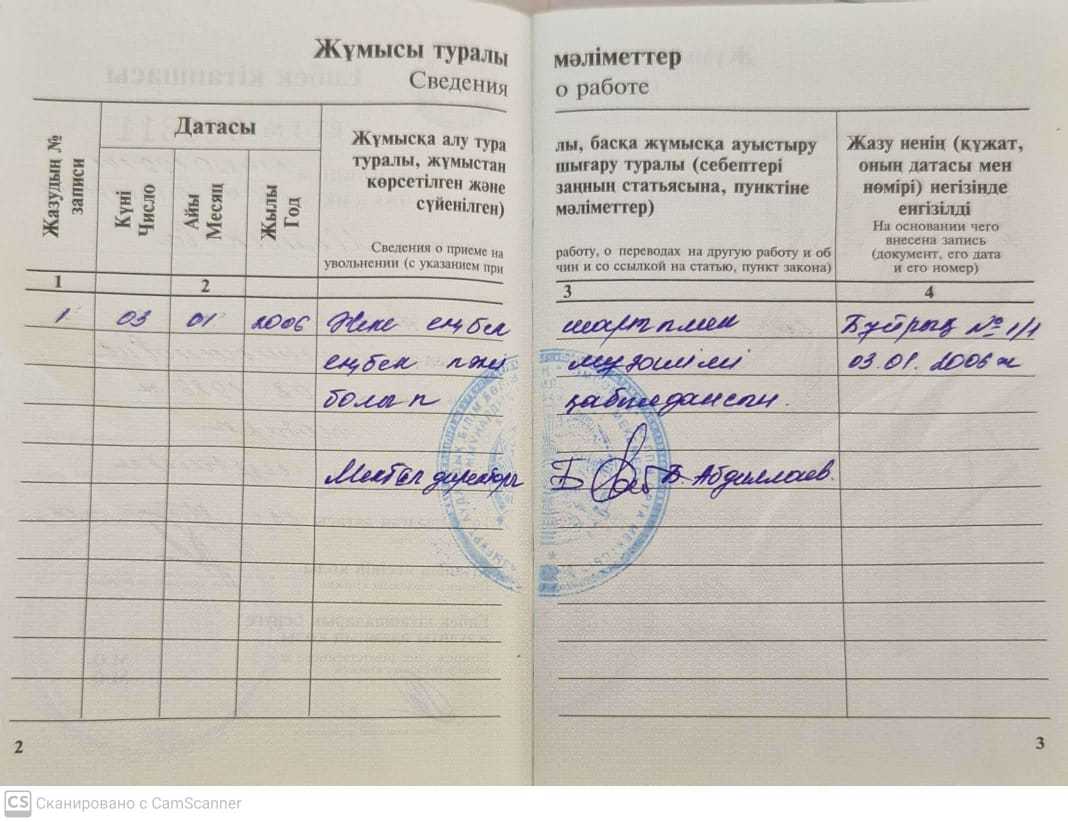 Жұмысы туралы мәліметтер
Сведения о работе
Жазудың №
записи
Датасы
Күні
Число
Айы
Месяц
Жылы
Год
Жұмысқа алу тура лы, басқа жұмысқа ауыстыру
туралы, жұмыстан шығару туралы (себептері
көрсетілген және заңның статьясына, пунктіне
сүйенілген) мәліметтер)
Сведения о приеме на работу, о переводах на другую работу и об
увольнении (с указанием при чин и со ссылкой на статью, пункт закона)
Жазу ненің (құжат,
оның датасы мен
нөмірі) негізінде
енгізілді
На основании чего
внесена запись
(документ, его дата
и его номер)
1 2 3 4
1 03 01 2006 Жеке еңбек шартпмен Бұйрық № 1/1
еңбек пәні мұғалімі 03.01.2006ж
болып қабылдансын.
Мектеп директоры Б Б. Абдиллаев.
2
3
CS Сканировано с CamScanner